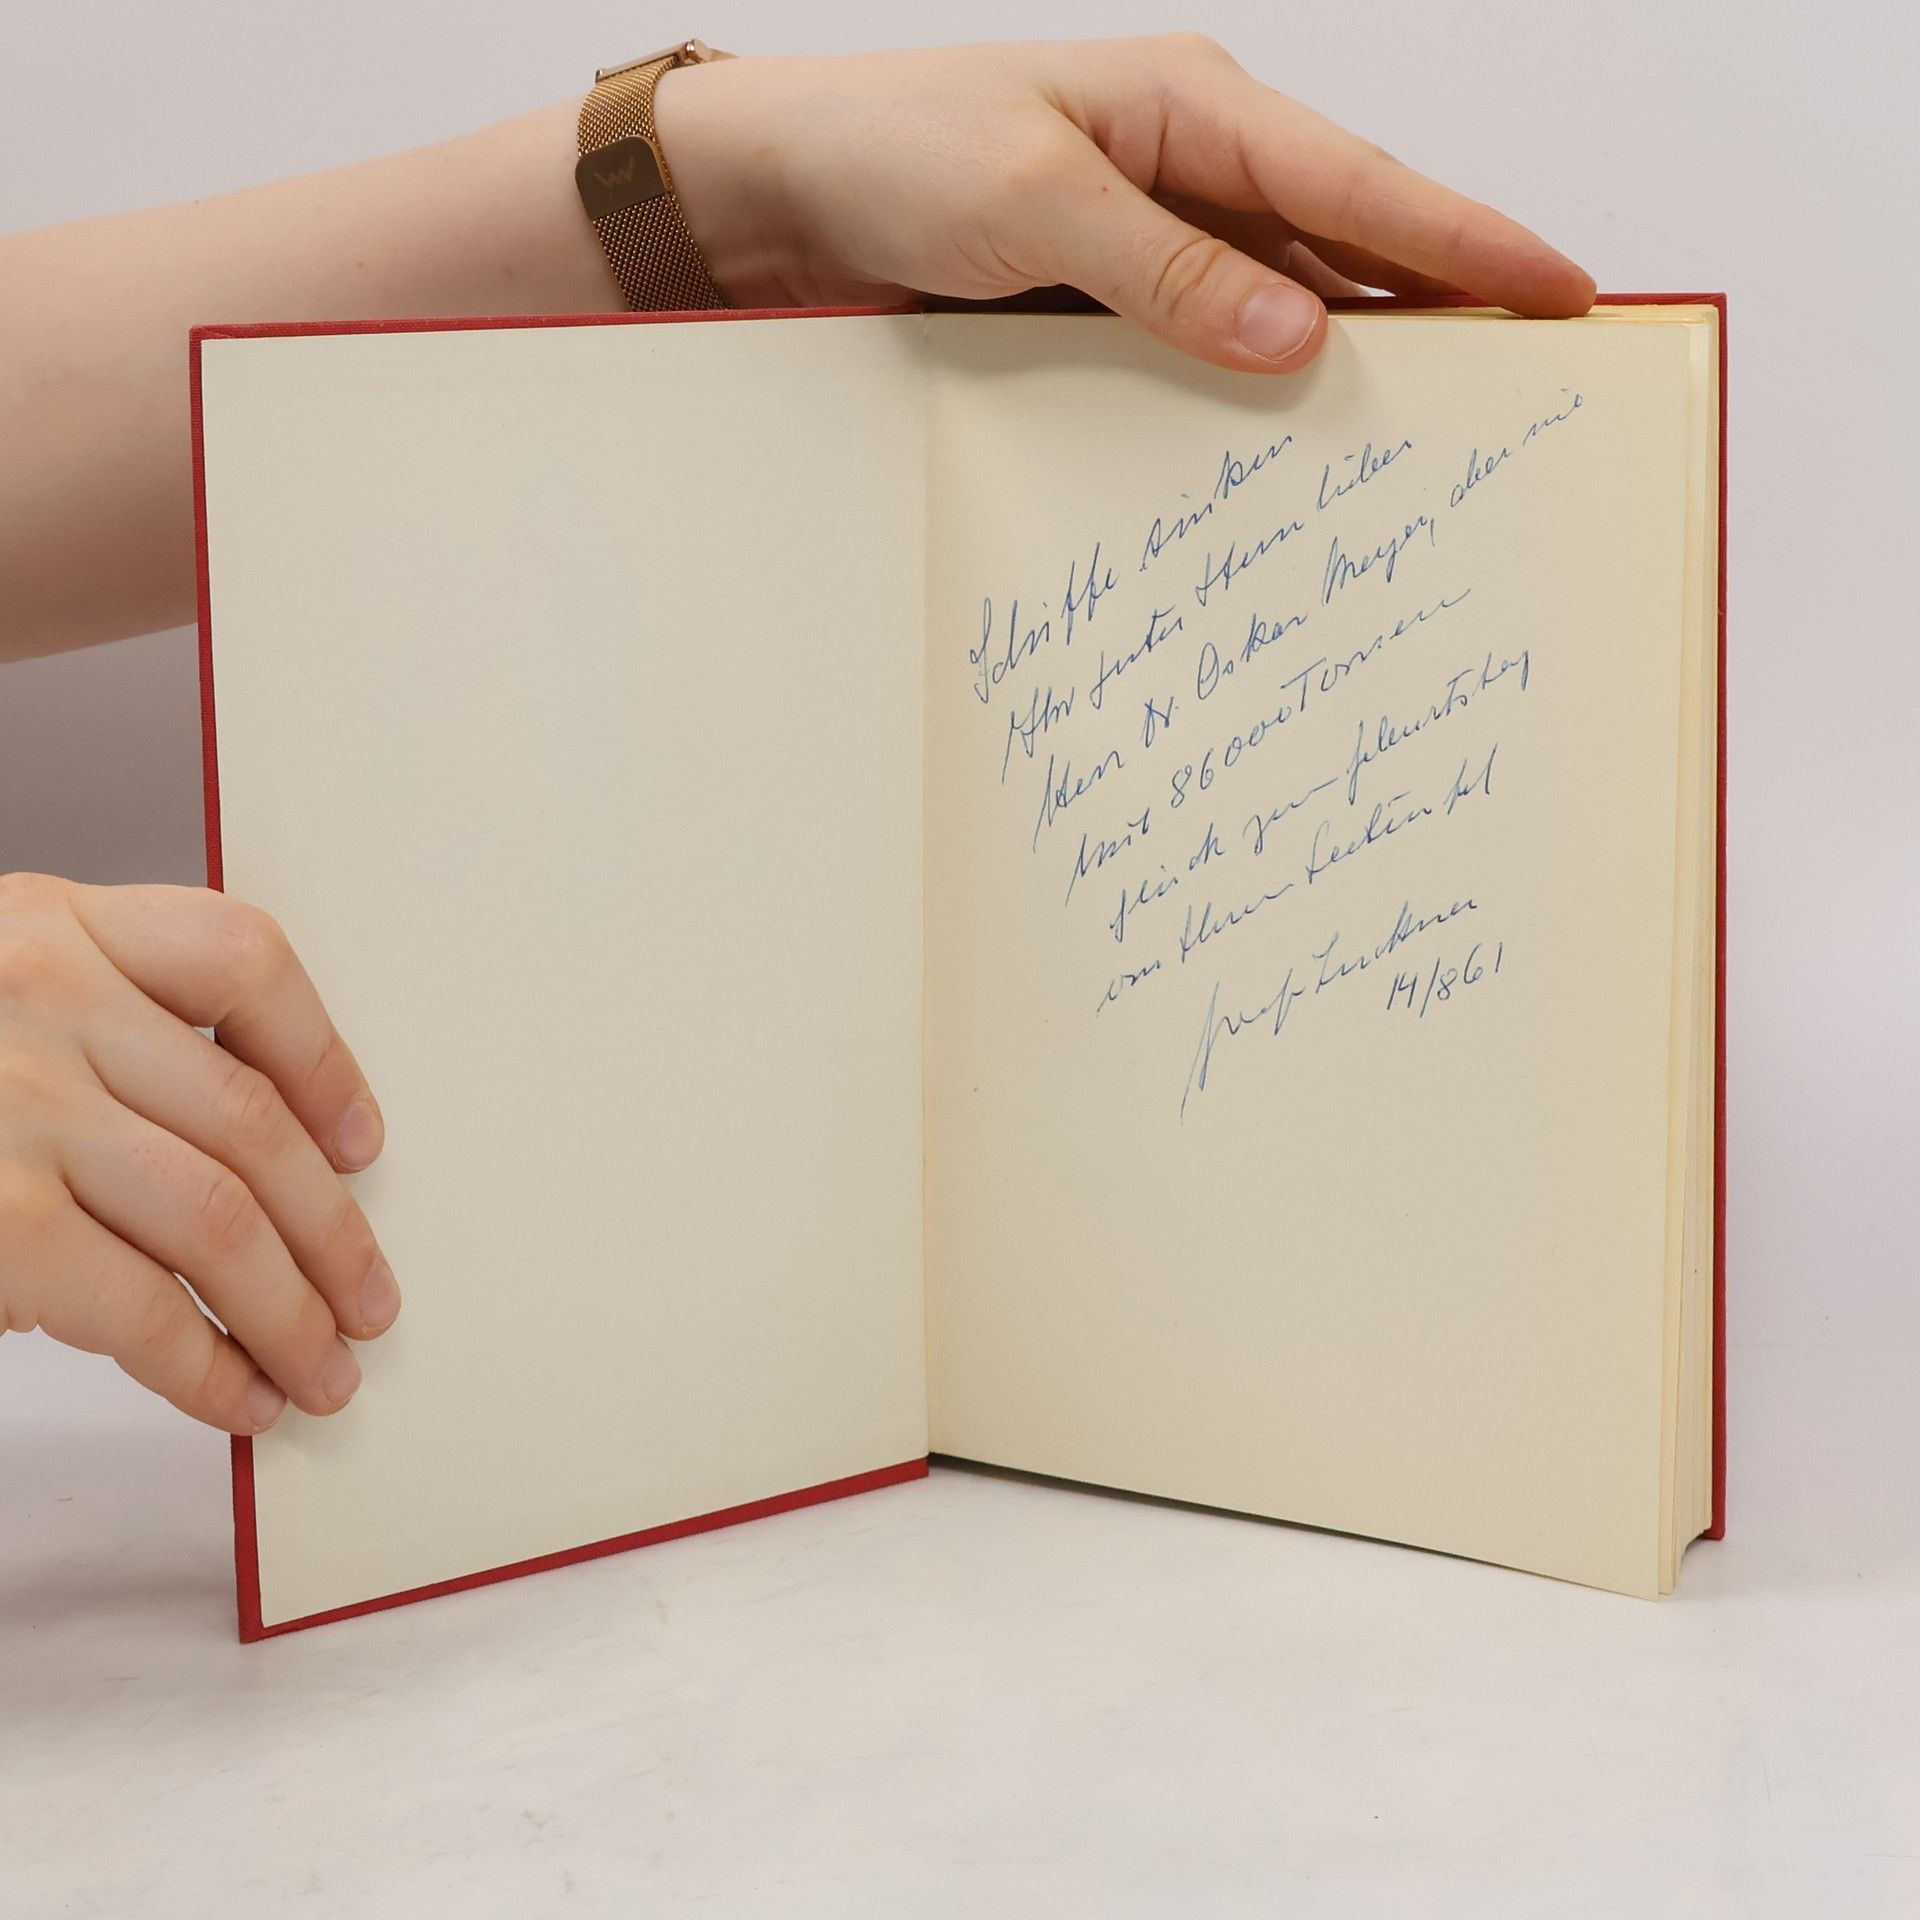 Schiffe sinken
Ihr guter Stern lieber
Herr Dr. Oskar Meyer, aber nie
Mit 86000 Tonnen
Glück zum Geburtstag
von Ihrem
Graf Luckner
14/861